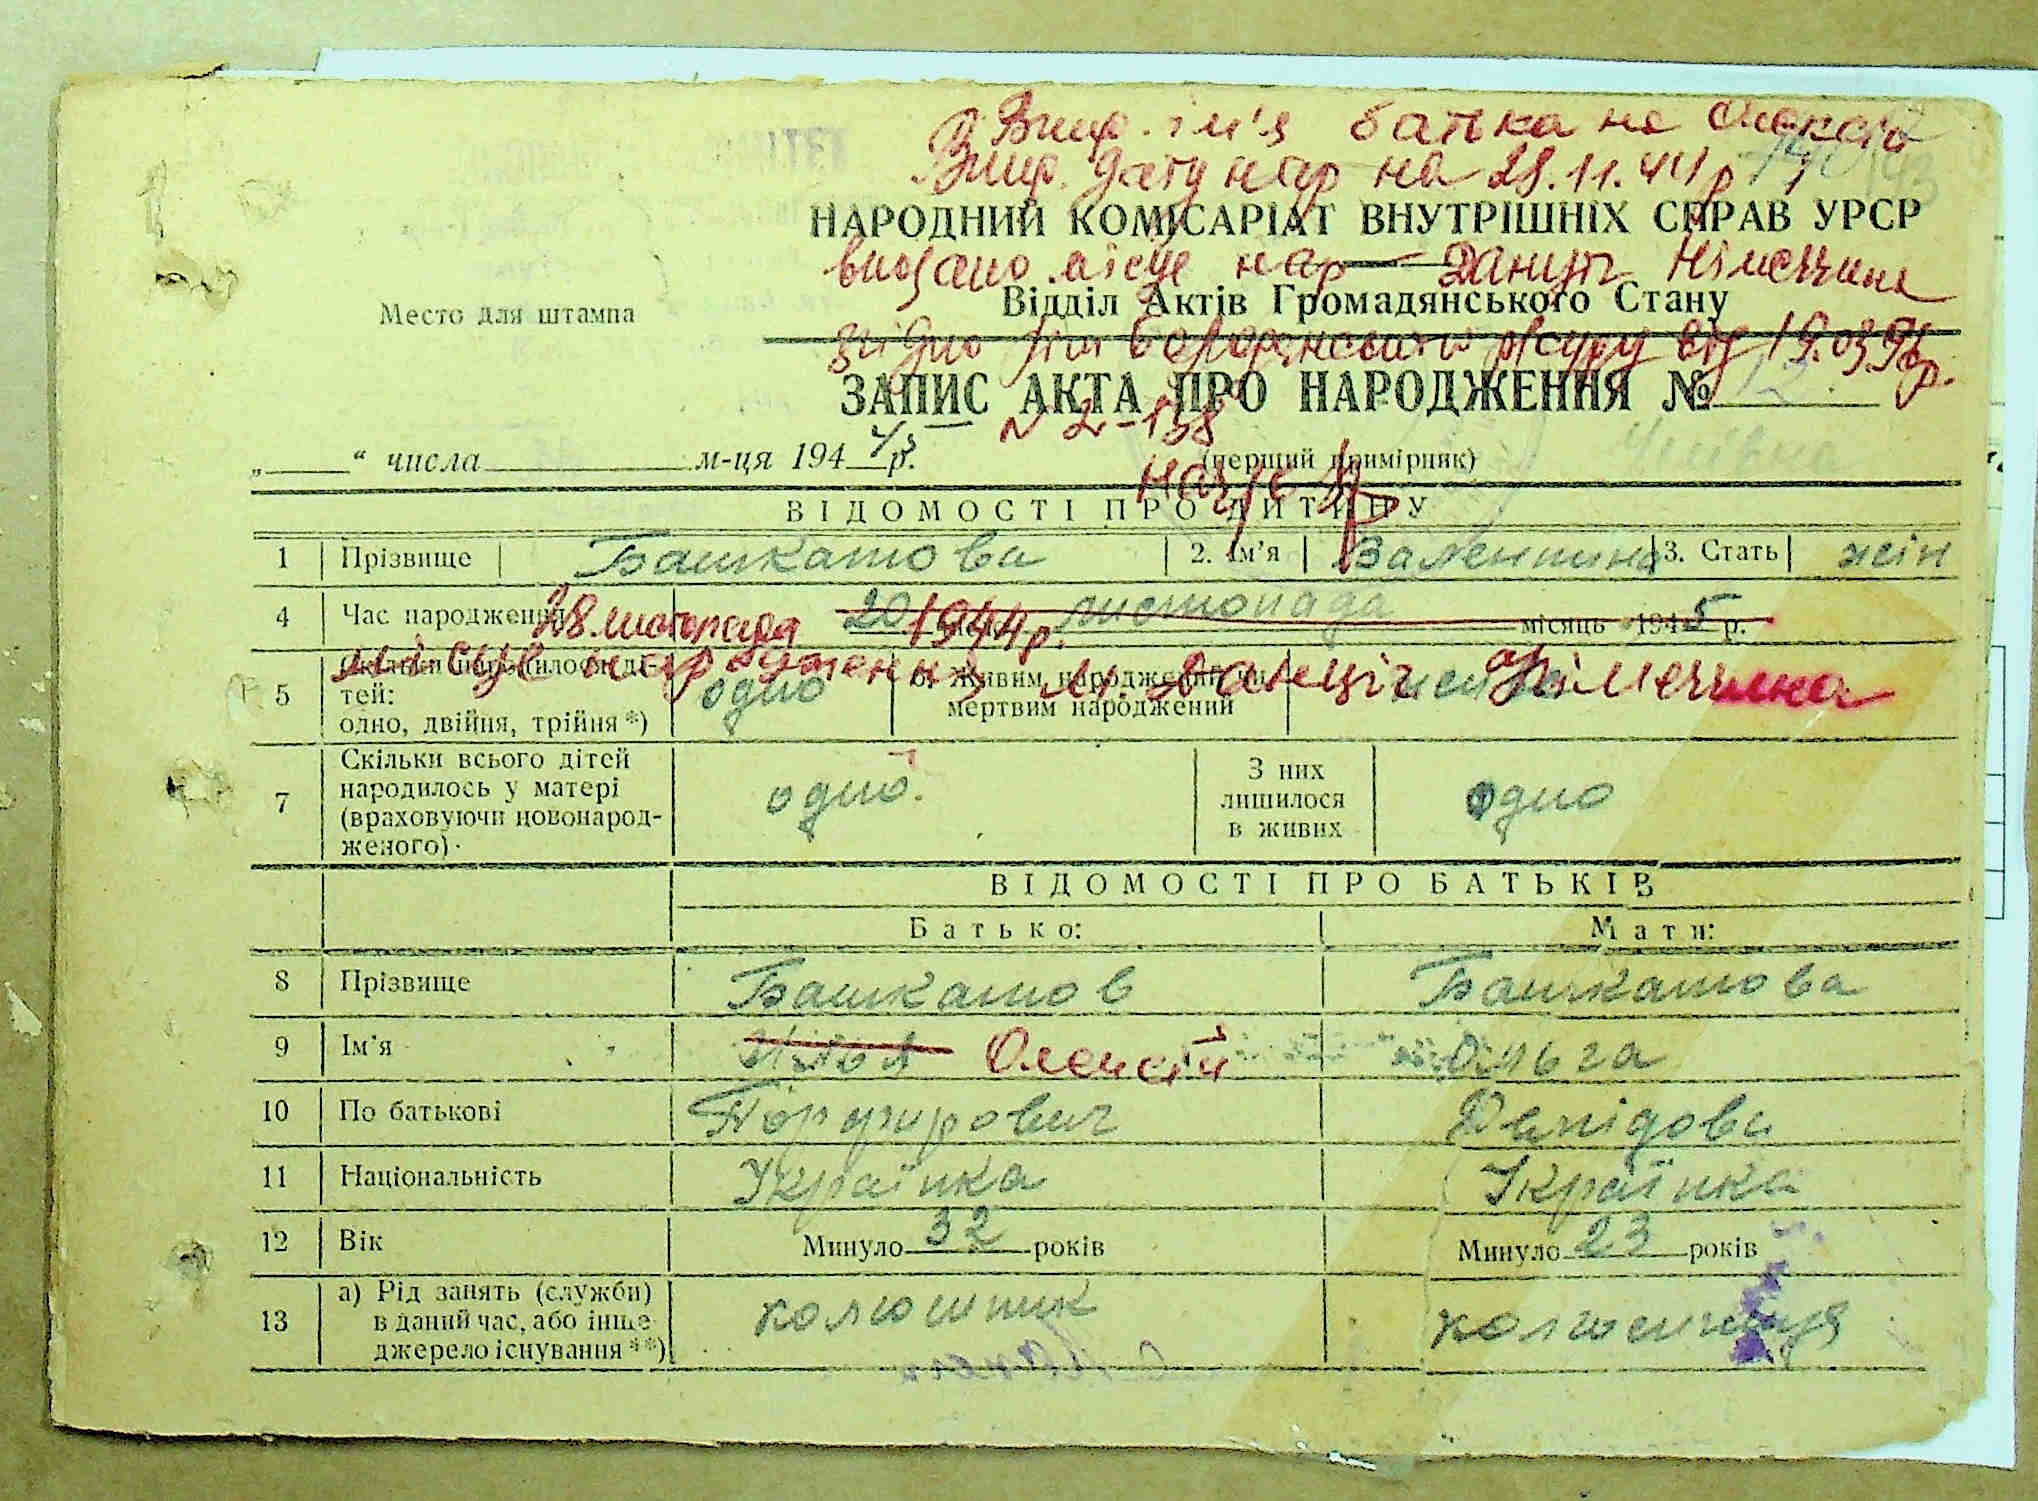 Випр. ім'я батька на Олексій
Випр. дату нар на 28.11.44 р
НАРОДНИЙ КОМІСАРІАТ ВНУТРІШНІХ СПРАВ УРСР
вказано місце нар Данциг Німеччина
Место для штампа
Відділ Актів Громадянського Стану
згідно ріш Бородянського р/суду від 19.03.96р.
ЗАПИС АКТА ПРО НАРОДЖЕННЯ № 12
N 2-138
„ “ числа м-ця 194 р.
(перший примірник)
ВІДОМОСТІ ПРО ДИТИНУ
1 Прізвище Башкатова 2. Ім'я Валентина 3. Стать жін
4 Час народження 20 листопада місяць 1945 р.
28 листопада 1944 р.
місце народження м. Данциг Німеччина
5 тей: одно мертвим народжений
одно, двійня, трійня*)
7 Скільки всього дітей народилось у матері (враховуючи новонародженого) одно. З них лишилося в живих одно
ВІДОМОСТІ ПРО БАТЬКІВ
Батько: Мати:
8 Прізвище Башкатов Башкатова
9 Ім'я Ілья Олексій Ольга
10 По батькові Порфирович Демідовн
11 Національність Українка Українка
12 Вік Минуло 32 років Минуло 23 років
13 а) Рід занять (служби) в даний час, або інше джерело існування**) колгошник колгошниця